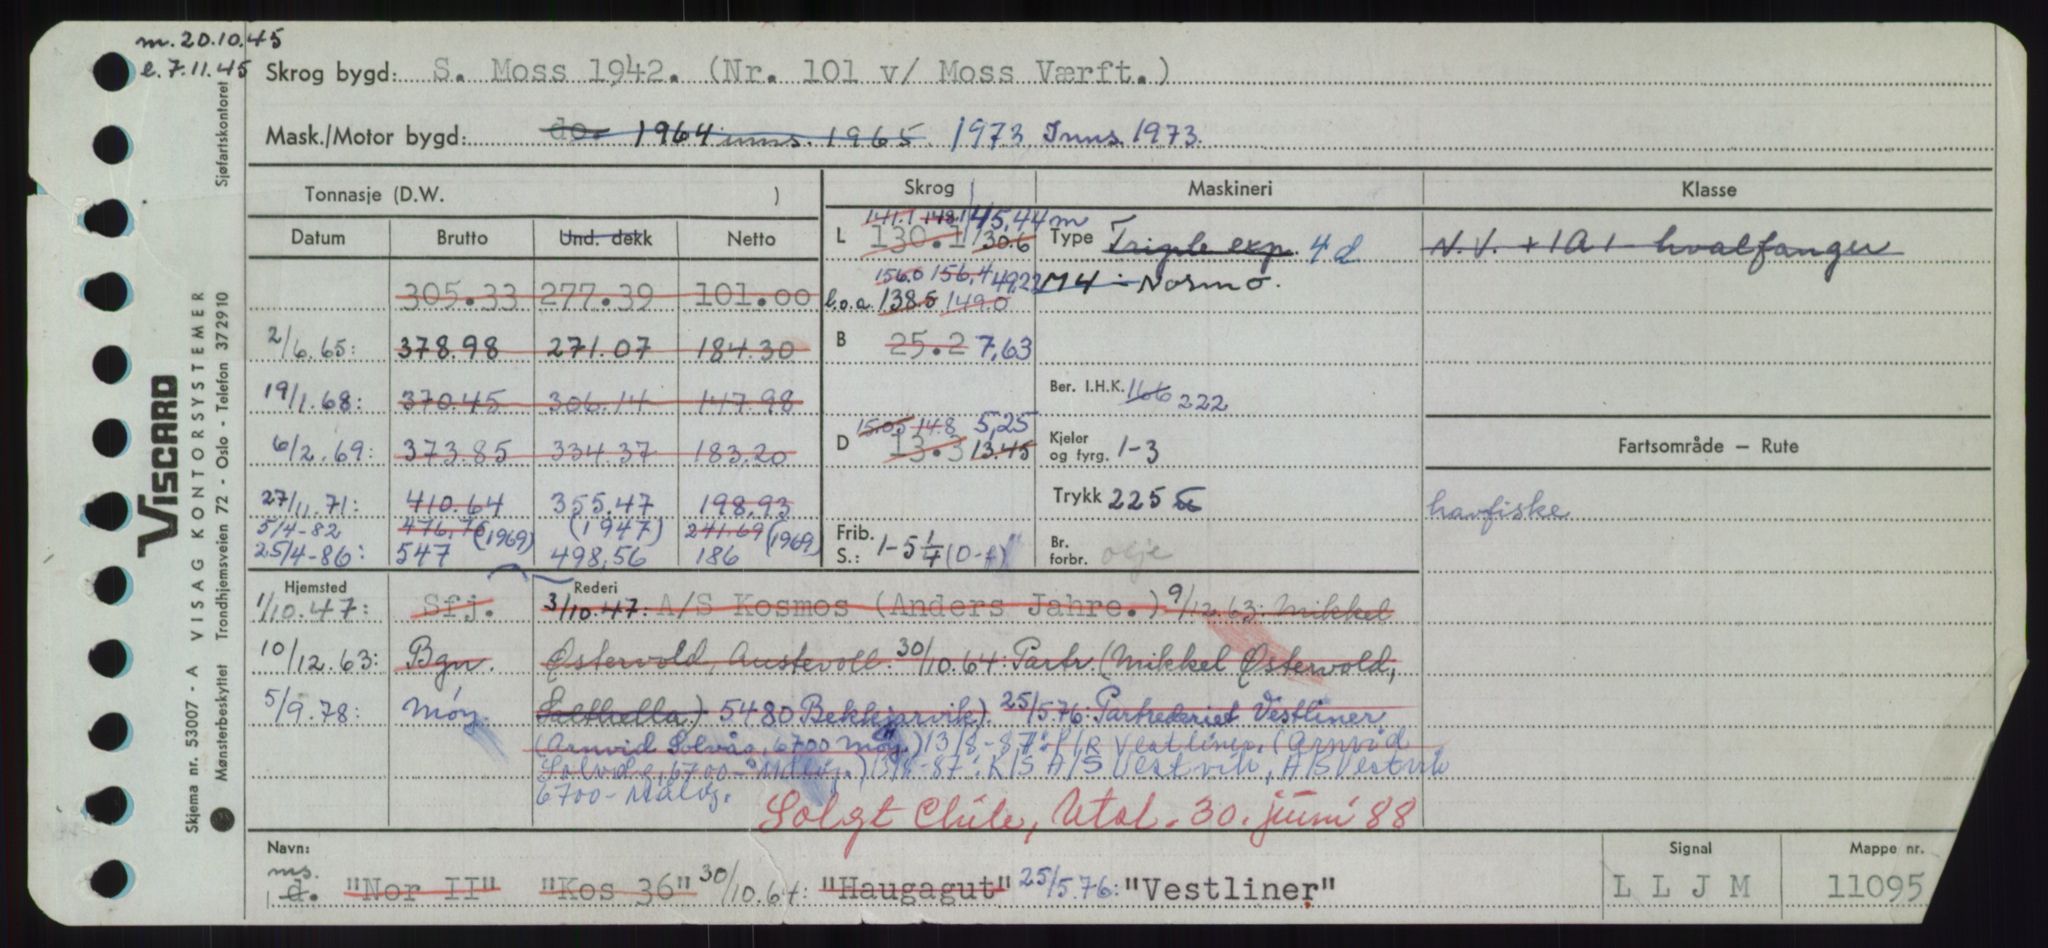 m. 20.10.45
e. 7.11.45
Skrog bygd: S. Moss 1942. (Nr. 101 v/ Moss Værft.)
Mask./Motor bygd: do. 1964 inns. 1965. 1973 Inns. 1973.
Tonnasje (D.W. ) Skrog Maskineri Klasse
Datum Brutto Und. dekk Netto
141.1 148.1 45,44 m
L 130.1 130.6 Type Triple exp. 4 d N.V. + 1A1 hvalfanger
156.0 156,4 49,22
305.33 277.39 101.00 l.o.a. 138.5 149.0 M4 - Normo.
2/6.65: 378.98 271.07 184.30 B 25.2 7,63
19/1.68: 370.45 306.14 147.98 Ber. I.H.K. 166 222
15.05 14.8 5,25
6/2.69: 373.85 334.37 183.20 D 13.3 13.45 Kjeler og fyrg. 1-3 Fartsområde — Rute
27/11.71: 410.64 355.47 198.93 Trykk 225 havfiske
5/4-82 476,76 (1969) (1947) 241.69 (1969)
25/4-86: 547 498,56 186 Frib. S.: 1-5 1/4 (0-f) Br. forbr. olje
Hjemsted Rederi
1/10.47: Sfj. 3/10.47: A/S Kosmos (Anders Jahre.) 9/12.63: Mikkel
10/12.63: Bgn. Østervold, Austevoll. 30/10.64: Partr. (Mikkel Østervold,
5/9.78: Møy. 5480 Bekkjarvik). 25/5.76: Partrederiet Vestliner
(Arnvid Solvåg, 6700 Måløy.) 13/8-87: P/R Vestliner, (Arnvid
6700- Måløy.) 13/8-87: K/S A/S Vestvik, A/S Vestvik
6700- Måløy.
Solgt Chile, Utal. 30. juni 88
Navn: Signal Mappe nr.
ms.
d. "Nor II" "Kos 36" 30/10.64: "Haugagut" 25/5.76: "Vestliner" L L J M 11095
VISCARD
Skjema nr. 53007 - A VISAG KONTORSYSTEMER
Mønsterbeskyttet Trondhjemsveien 72 - Oslo - Telefon 372910 Sjøfartskontoret